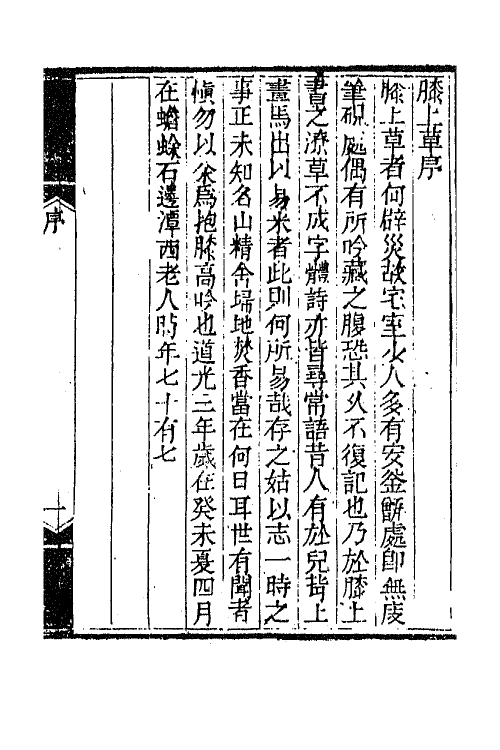 膝上草序
膝上草者何辟災故宅室少人多有安釜甑處即無庋
筆硯處偶有所吟藏之腹恐其久不復記也乃於膝上
書之潦草不成字體詩亦皆尋常語昔人有於兒背上
畫馬出以易米者此則何所易哉存之姑以志一時之
事正未知名山精舍埽地焚香當在何日耳世有聞者
慎勿以余為抱膝高吟也道光三年歲在癸未夏四月
在蟾蜍石邊潭西老人時年七十有七
序
一